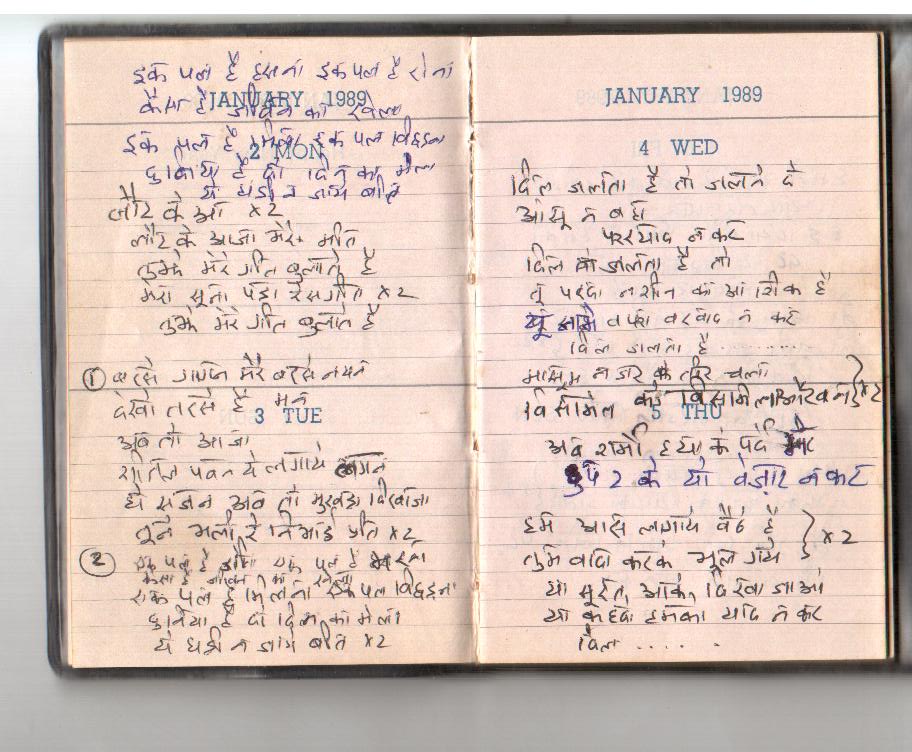 इक पल है हसना इक पल है रोना
कैसा है जीवन का खेला
JANUARY 1989
इक पल है मिलना इक पल विछड़न
2 MON
दुनिया है दो दिन का मेला
ये घड़ी न जाय बीत
लौट के आ x2
लौट के आजा मेरे मीत
तुझे मेरे गीत बुलाते है
मेरा सूना पड़ा रे संगीत x2
तुझे मेरे गीत बुलाते है
① बरसे गगन मेरे बरसे नयन
देखो तरसे है मन
3 TUE
अब तो आजा
शीतल पवन ये लगाये अगन
ओ सजन अब तो मुखड़ा दिखाजा
तूने भली रे निभाई प्रीत x2
② एक पल है एक पल है
कैसा है जीवन का खेला
एक पल है मिलना एक पल विछड़न
दुनिया है दो दिन का मेला
ये घड़ी न जाय बीत x2
JANUARY 1989
4 WED
दिल जलता है तो जलने दे
आंसू न बहा
फरयाद न कर
दिल जलता है तो
तू परदा नशीन का आशिक है
यूं नामे वफा बरबाद न कर
दिल जलता है .........
मासूम नजर के तीर चला
बिसमिल को बिसमिल और बना x2
5 THU
अब शर्मो हया के पर्दे में
छुप 2 के यो बेज़ार न कर
हम आस लगाये बैठे है
तुम वादा करके भूल गये x2
या सूरत आके दिखा जाओ
या कहदो हमको याद न कर
दिल ......